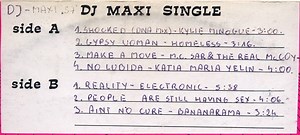 DJ-MAXI.ST DJ MAXI SINGLE
side A 1. SHOCKED (DNA MIX) - KYLIE MINOGUE - 3:00.
2. GYPSY WOMAN - HOMELESS - 3:16.
3. MAKE A MOVE - MC. SAR & THE REAL McCOY
4. NO LUDIDA - KATIA MARIA YELIN - 4:00.
side B 1. REALITY - ELECTRONIC - 5:38
2. PEOPLE ARE STILL HAVING SEX - 4:06
3. AINT NO CURE - BANANARAMA - 3:24.